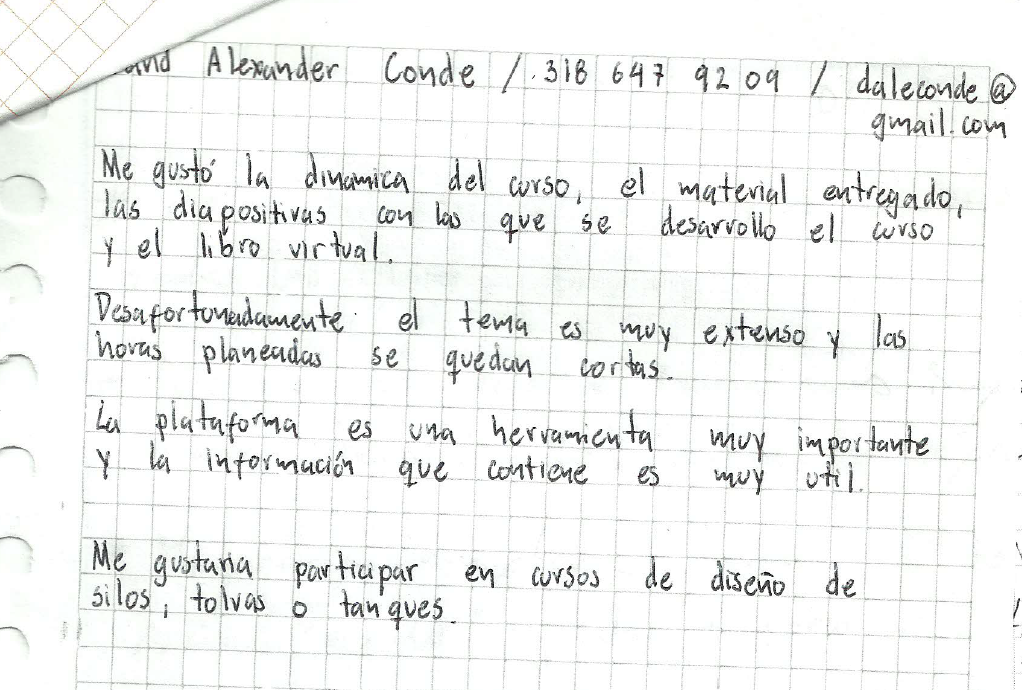 Alexander Conde / 318 647 92 09 / daleconde@
gmail.com
Me gustó la dinamica del curso, el material entregado,
las diapositivas con las que se desarrollo el curso
y el libro virtual.
Desafortunadamente el tema es muy extenso y las
horas planeadas se quedan cortas.
La plataforma es una herramienta muy importante
y la información que contiene es muy util.
Me gustaria participar en cursos de diseño de
silos, tolvas o tanques.